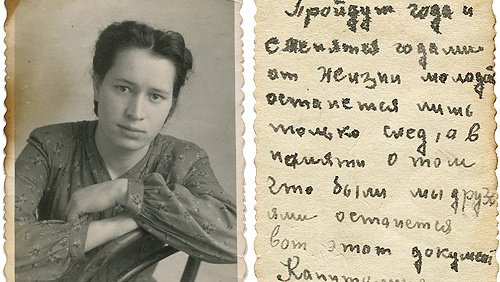 Пройдут года и
сменятся годами
от жизни молодой
останется лишь
только след, а в
памяти о том
что были мы друзь
ями останется
вот этот докумен